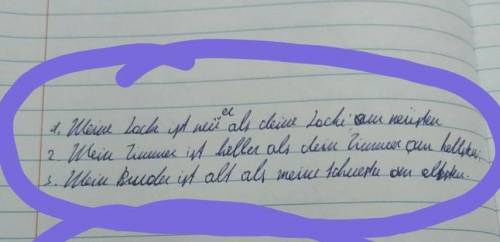 1. Meine Jacke ist neuer als deine Jacke; am neusten
2. Mein Zimmer ist heller als dein Zimmer am hellsten;
3. Mein Bruder ist alt als meine Schwester am ältesten.